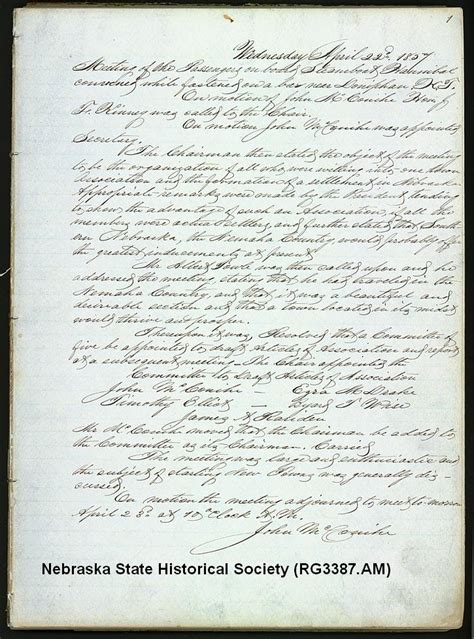 1
Wednesday April 22d. 1857
Meeting of the Passengers on board Steamboat Hannibal
convened while fastened on a bar near Doniphan K.T.
On motion of John McConihe Hon J
F. Kinney was called to the Chair.
On motion John McConihe was appointed
Secretary.
The Chairman then stated the object of the meeting
to be the organization of all who were willing into one town
Association and the formation of a settlement in Nebraska
Appropriate remarks were made by the President tending
to show the advantage of such an Association, if all the
members were actual settlers, and further stated that South
ern Nebraska, the Nemaha Country would probably offer
the greatest inducements at present
Mr. was then called upon and he
addressed the meeting stating that he had traveled in the
Nemaha Country, and that it was a beautiful and
desirable section and that a town located in its midst
would thrive and prosper.
Thereupon it was Resolved that a Committee of
five be appointed to draft Articles of Association and report
at a subsequent meeting. The Chair appointed the
Committee to Draft Articles of Association
John McConihe — Ezra M Drake
Timothy Elliot — T Wise
James
Mr McConihe moved that the Chairman be added to
the Committee as its Chairman. Carried
The meeting was large and enthusiastic and
the subject of starting New Towns was generally dis-
cussed.
On motion the meeting adjourned to meet to morrow
April 23d. at 10 oClock A.M.
John McConihe
Nebraska State Historical Society (RG3387.AM)